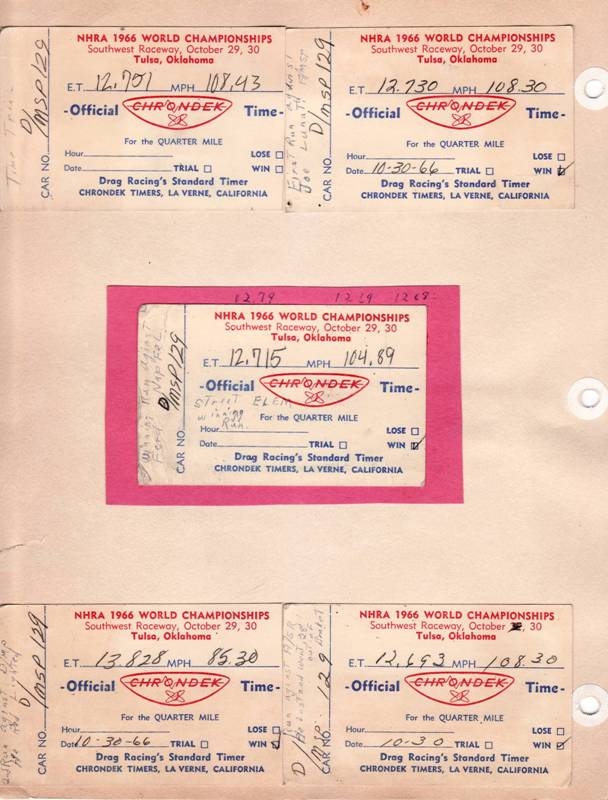 NHRA 1966 WORLD CHAMPIONSHIPS
Southwest Raceway, October 29, 30
Tulsa, Oklahoma
E.T. 12.701 MPH 108.43
-Official CHRONDEK Time-
For the QUARTER MILE
Hour LOSE
Date TRIAL WIN
Drag Racing's Standard Timer
CHRONDEK TIMERS, LA VERNE, CALIFORNIA
CAR NO. D/MSP129
Time
NHRA 1966 WORLD CHAMPIONSHIPS
Southwest Raceway, October 29, 30
Tulsa, Oklahoma
E.T. 12.730 MPH 108.30
-Official CHRONDEK Time-
For the QUARTER MILE
Hour LOSE
Date 10-30-66 TRIAL WIN
Drag Racing's Standard Timer
CHRONDEK TIMERS, LA VERNE, CALIFORNIA
CAR NO. D/MSP129
First Run against
Joe Lunati
12.79 12.69 12.68
NHRA 1966 WORLD CHAMPIONSHIPS
Southwest Raceway, October 29, 30
Tulsa, Oklahoma
E.T. 12.715 MPH 104.89
-Official CHRONDEK Time-
Street ELEM
winning For the QUARTER MILE
Hour Run. LOSE
Date TRIAL WIN
Drag Racing's Standard Timer
CHRONDEK TIMERS, LA VERNE, CALIFORNIA
CAR NO. D/MSP129
Winning Run against
Ford
NHRA 1966 WORLD CHAMPIONSHIPS
Southwest Raceway, October 29, 30
Tulsa, Oklahoma
E.T. 13.828 MPH 85.30
-Official CHRONDEK Time-
For the QUARTER MILE
Hour LOSE
Date 10-30-66 TRIAL WIN
Drag Racing's Standard Timer
CHRONDEK TIMERS, LA VERNE, CALIFORNIA
CAR NO. D/MSP129
Run against
He Red Lighted
NHRA 1966 WORLD CHAMPIONSHIPS
Southwest Raceway, October 29, 30
Tulsa, Oklahoma
E.T. 12.693 MPH 108.30
-Official CHRONDEK Time-
For the QUARTER MILE
Hour LOSE
Date 10-30 TRIAL WIN
Drag Racing's Standard Timer
CHRONDEK TIMERS, LA VERNE, CALIFORNIA
CAR NO. D/MSP 129
Run against
He lost and went